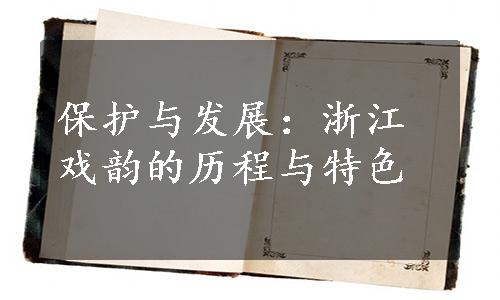 保护与发展：浙江
戏韵的历程与特色